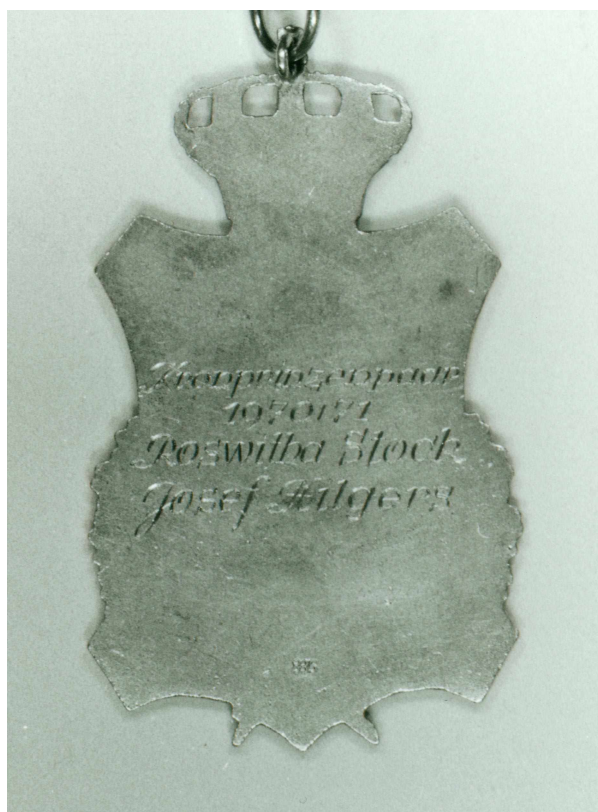 Kronprinzenpaar
1970/71
Roswitha Stock
Josef Hilgers
835